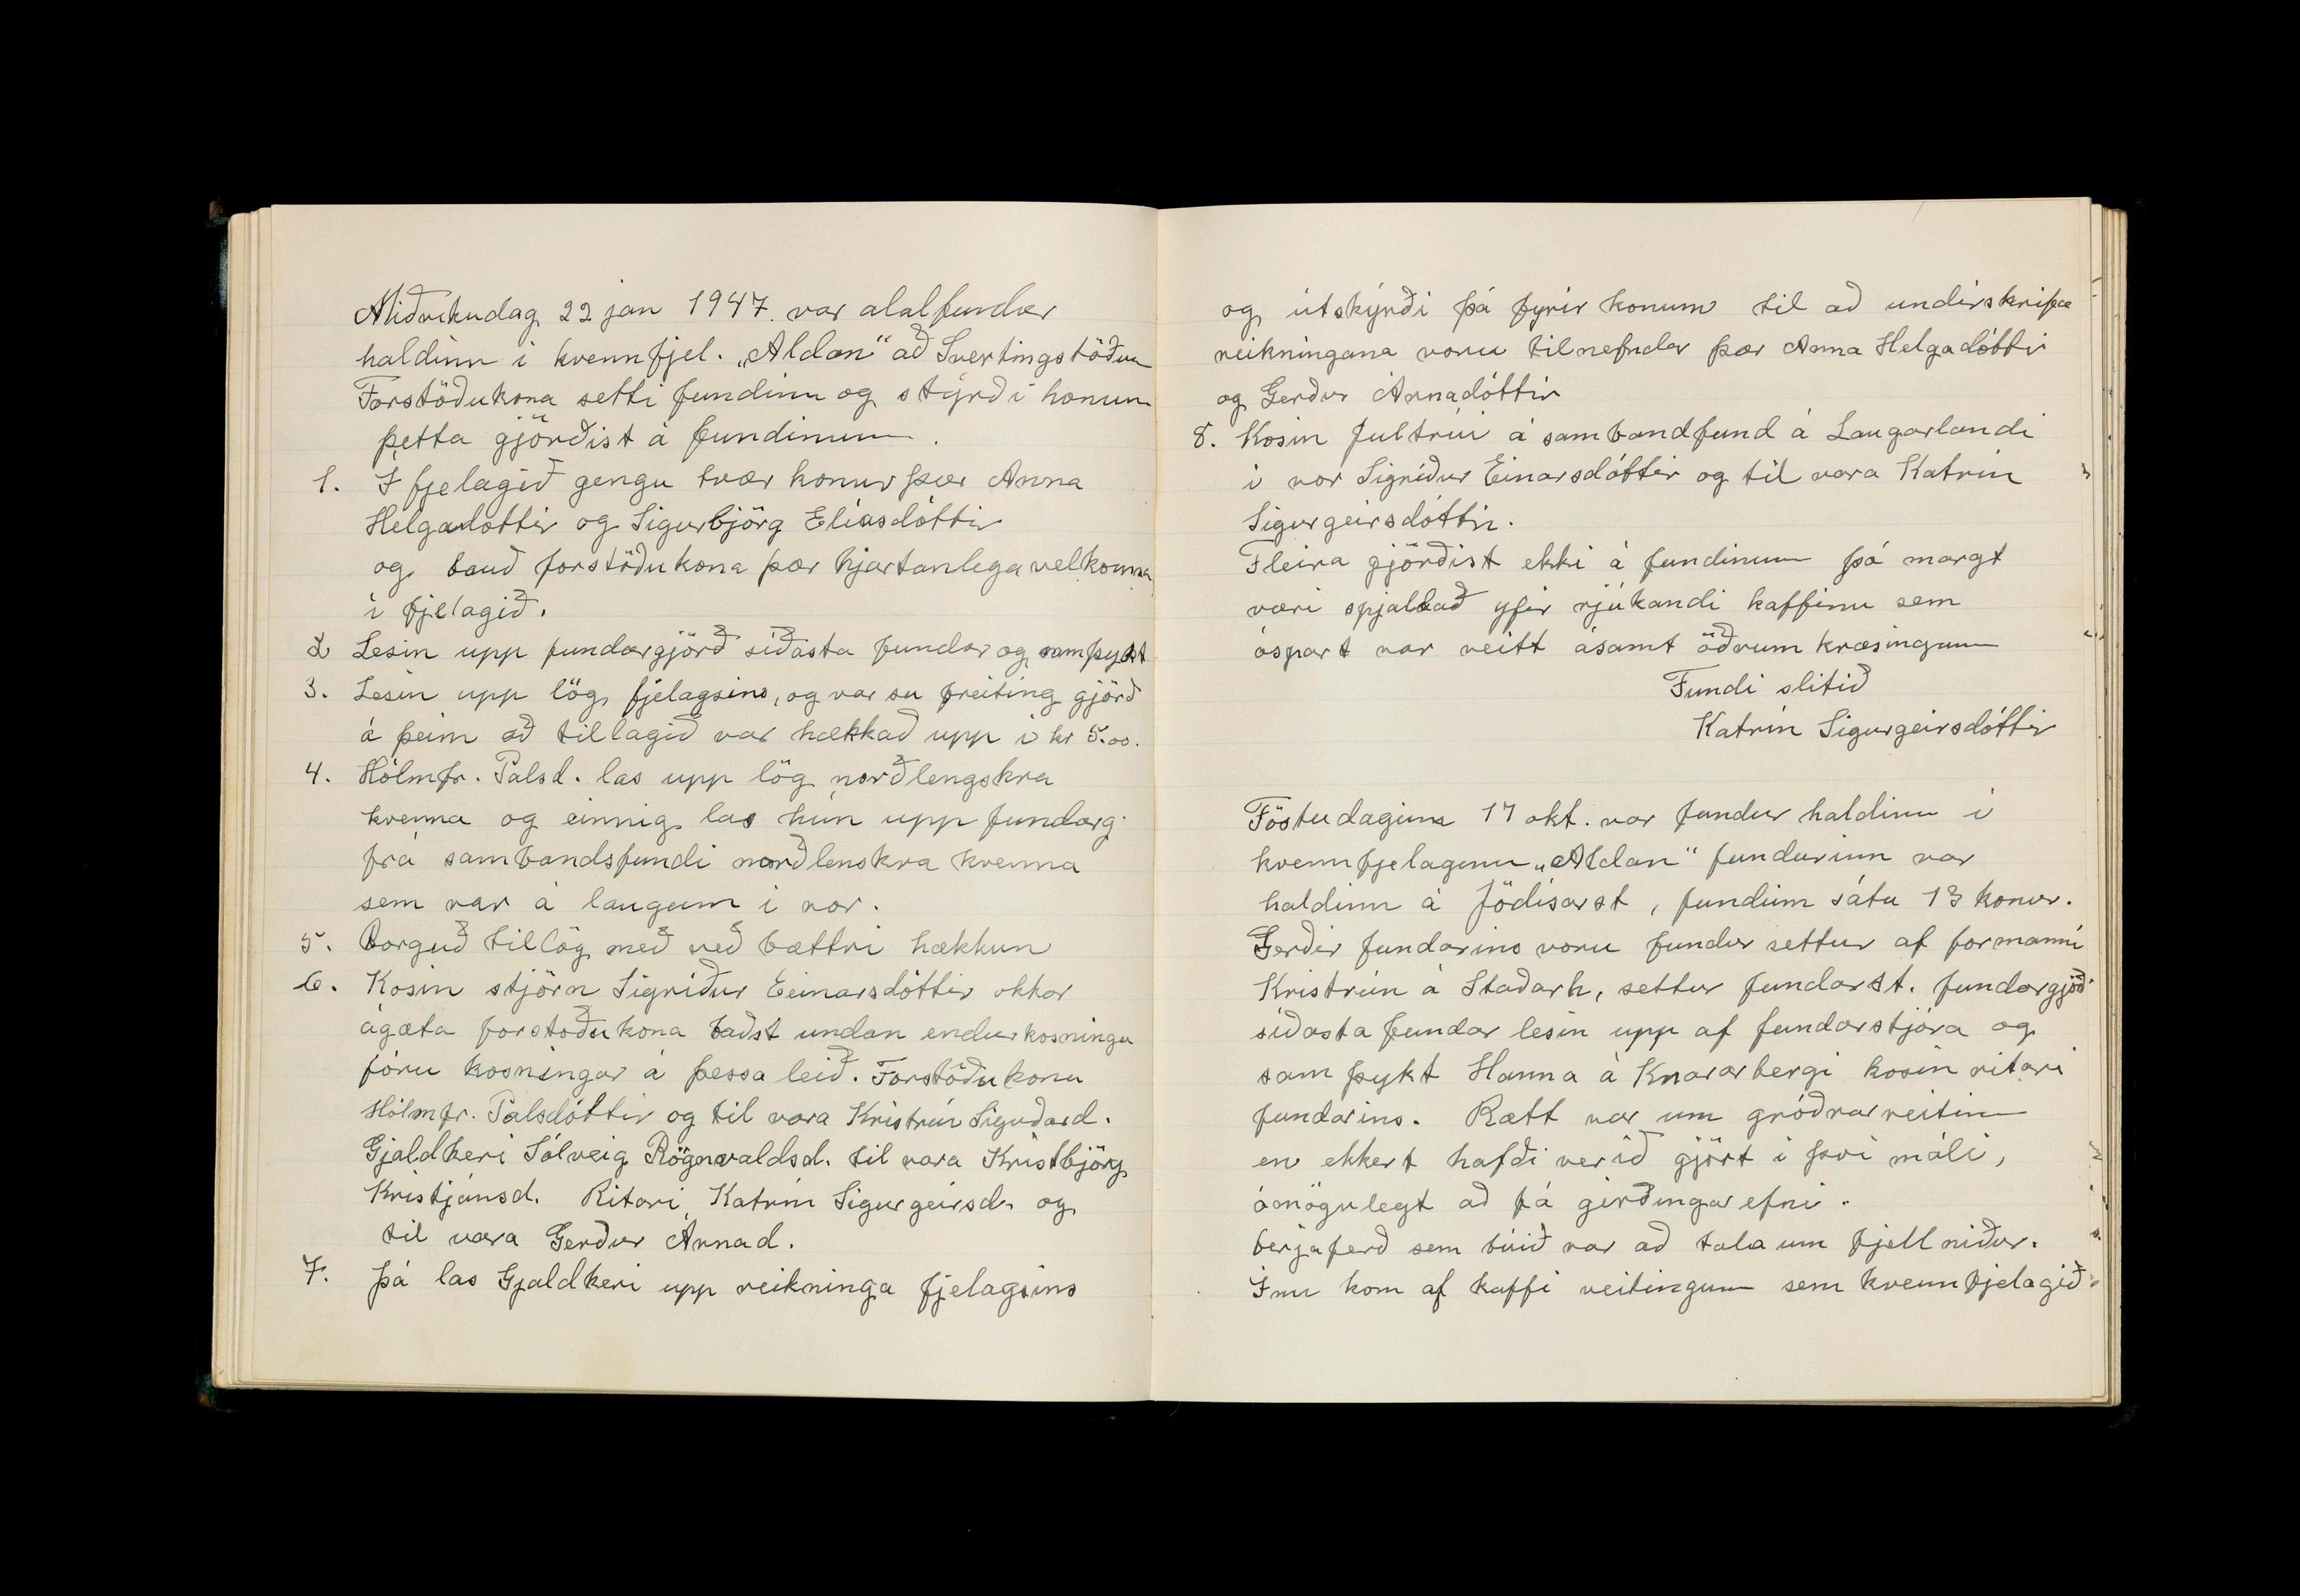 Miðvikudag 22 jan 1947. var alalfundur
haldinn í kvennfjel. „Aldan" að Svertingstöðum
Forstöðukona setti fundinn og stýrði honum
þetta gjörðist á fundinum.
1. Í fjelagið gengu tvær konur þær Anna
Helgadóttir og Sigurbjörg Elíasdóttir
og bauð forstöðukona þær hjartanlega velkomna
í fjelagið.
2 Lesin upp fundargjörð síðasta fundar og samþykt
3. Lesin upp lög fjelagsins, og var su breiting gjörð
á þeim að tillagið var hækkað upp í kr 5.00.
4. Hólmfr. Pálsd. las upp lög norðlengskra
kvenna og einnig las hún upp fundarg.
frá sambandsfundi norðlenskra kvenna
sem var á laugum í vor.
5. Borguð tillög með við bættri hækkun
6. Kosin stjórn Sigríður Einarsdóttir okkar
ágæta forstöðukona baðst undan endurkosningu
fóru kosningar á þessa leið. Forstöðukona
Hólmfr. Pálsdóttir og til vara Kristrún Siguðard.
Gjaldkeri Sólveig Rögnvaldsd. til vara Kristbjörg
Kristjánsd. Ritari Katrín Sigurgeirsd. og
til vara Gerður Árnad.
7. Þá las Gjaldkeri upp reikninga fjelagsins
og útskýrði þá fyrir konum til að undirskrifa
reikningana voru tilnefndar þær Anna Helgadóttir
og Gerður Árnadóttir
8. Kosin fultrúi á sambandfund á Laugarlandi
í vor Sigríður Einarsdóttir og til vara Katrín
Sigurgeirsdóttir.
Fleira gjörðist ekki á fundinum þó margt
væri spjallað yfir rjúkandi kaffinu sem
óspart var veitt ásamt öðrum kræsingum
Fundi slitið
Katrín Sigurgeirsdóttir
Föstudaginn 17 okt. var fundur haldinn í
kvennfjelaginu „Aldan" fundurinn var
haldinn á Jódísarst, fundinn sátu 13 konur.
Gerðir fundarins voru fundur settur af formanni
Kristrún á Staðarh, settur fundarst. fundargjöð
síðasta fundar lesin upp af fundarstjóra og
samþykt Hanna á Knararbergi kosin ritari
fundarins. Rætt var um gróðrarreitinn
en ekkert hafði verið gjört í því máli,
ómögulegt að fá girðingarefni.
berjaferð sem búið var að tala um fjell niður.
Inn kom af kaffi veitingum sem kvennfjelagið